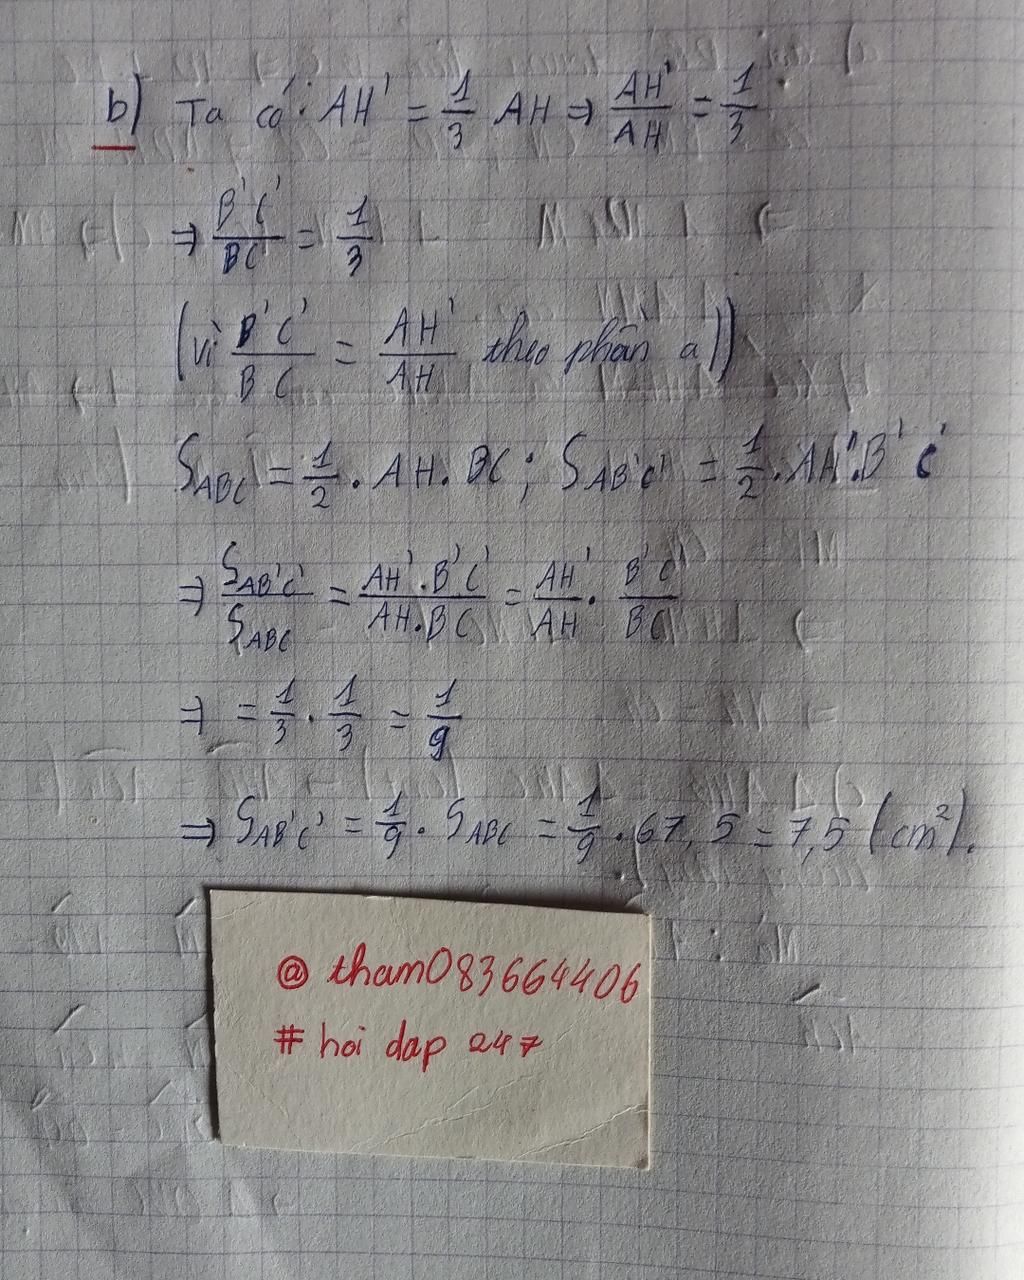 b) Ta có: AH' = 1/3 AH ⇒ AH'/AH = 1/3
⇒ B'C'/BC = 1/3
(vì B'C'/BC = AH'/AH theo phần a))
S_ABC = 1/2 . AH . BC ; S_AB'C' = 1/2 . AH' . B'C'
⇒ S_AB'C'/S_ABC = AH'.B'C'/AH.BC = AH'/AH . B'C'/BC
⇒ = 1/3 . 1/3 = 1/9
⇒ S_AB'C' = 1/9 . S_ABC = 1/9 . 67,5 = 7,5 (cm²).
@ tham083664406
# hoi dap 247